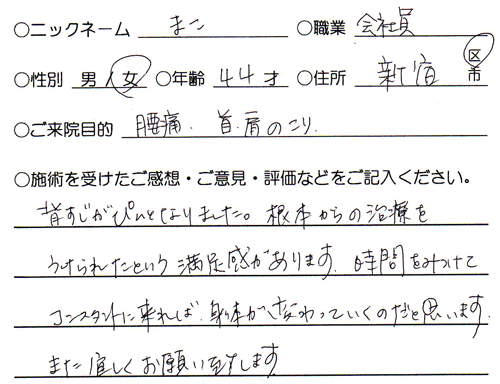 ○ニックネーム まこ ○職業 会社員
○性別 男・女 ○年齢 44才 ○住所 新宿 区 市
○ご来院目的 腰痛、首・肩のこり。
○施術を受けたご感想・ご意見・評価などをご記入ください。
背すじがぴんとなりました。根本からの治療を
うけられたという満足感があります。時間をみつけて
コンスタントに来れば、身体が変わっていくのだと思います。
また宜しくお願い致します